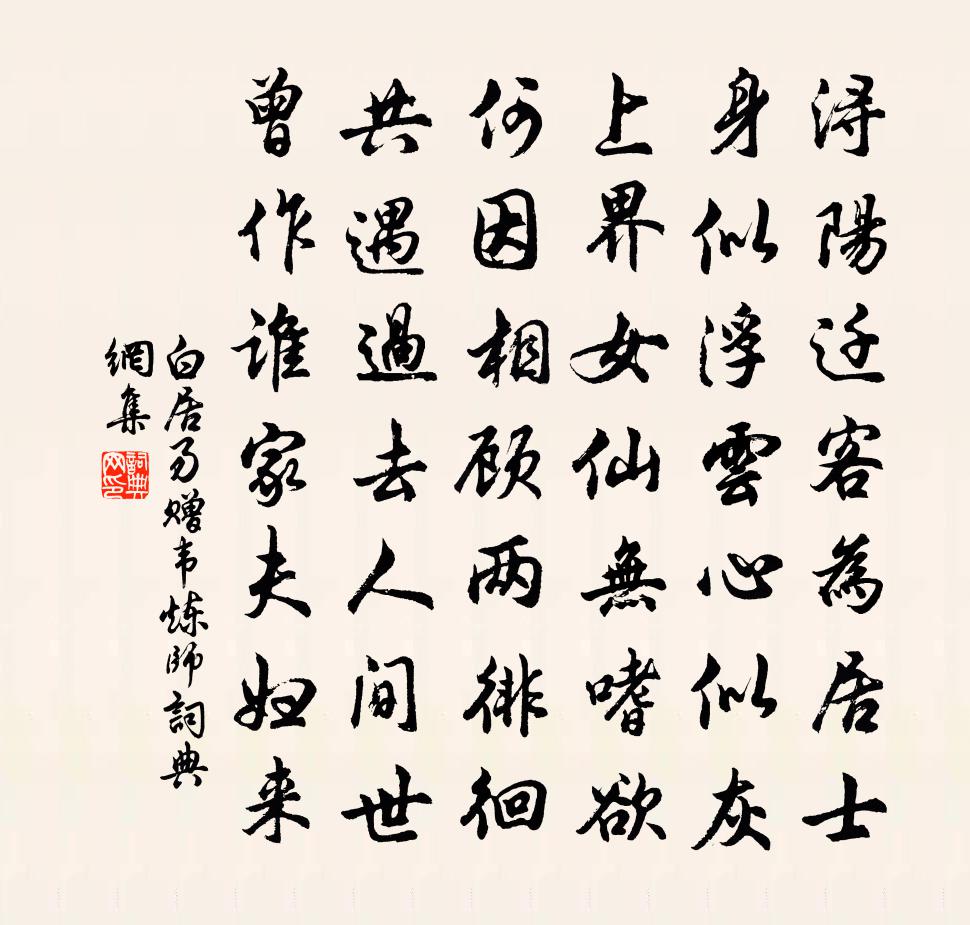 浔陽迁客為居士
身似浮雲心似灰
上界女仙無嗜欲
何因相顾两徘徊
共遇過去人间世
曾作谁家夫妇来
白居易赠韦炼師詞典
網集
詞典
网印